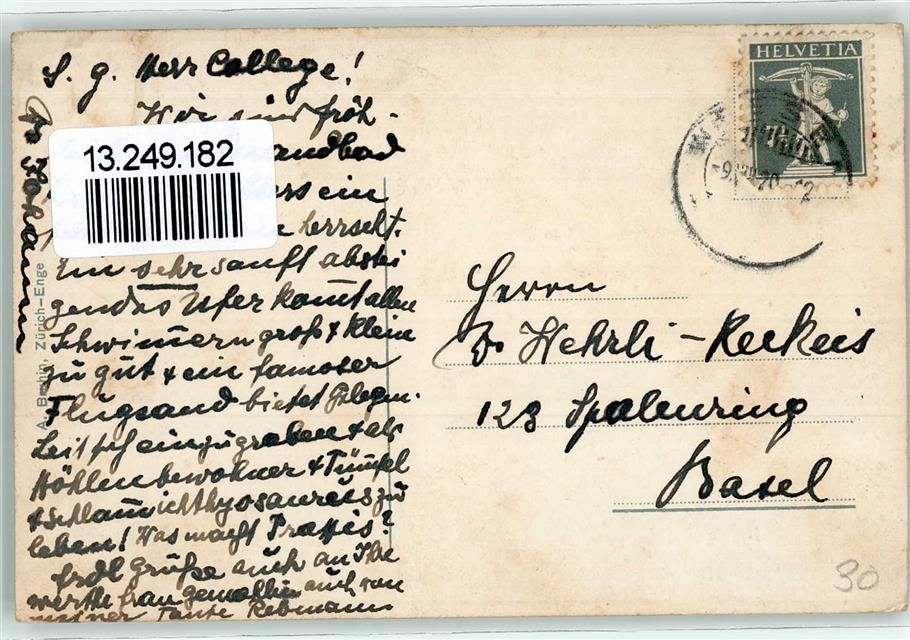 S. g. Herr College!
Wir sind fröh-
andbad
ers ein
herrscht.
Ein sehr sanft abstei
gendes Ufer kommt allen
Schwimmern groß & klein
zu gut & ein famoser
Flugsand bietet Gelegen-
heit sich einzugraben & als
Höhlenbewohner & Tümpel
& Schlammichthyosaurus zu
leben! Was macht Praxis?
Grüße auch an Ihre
werthe Frau Gemahlin auch von
meiner Tante Rebmann
13.249.182
Zürich-Enge
HELVETIA
Herrn
Dr Wehrli-Keckeis
123 Spalenring
Basel
30